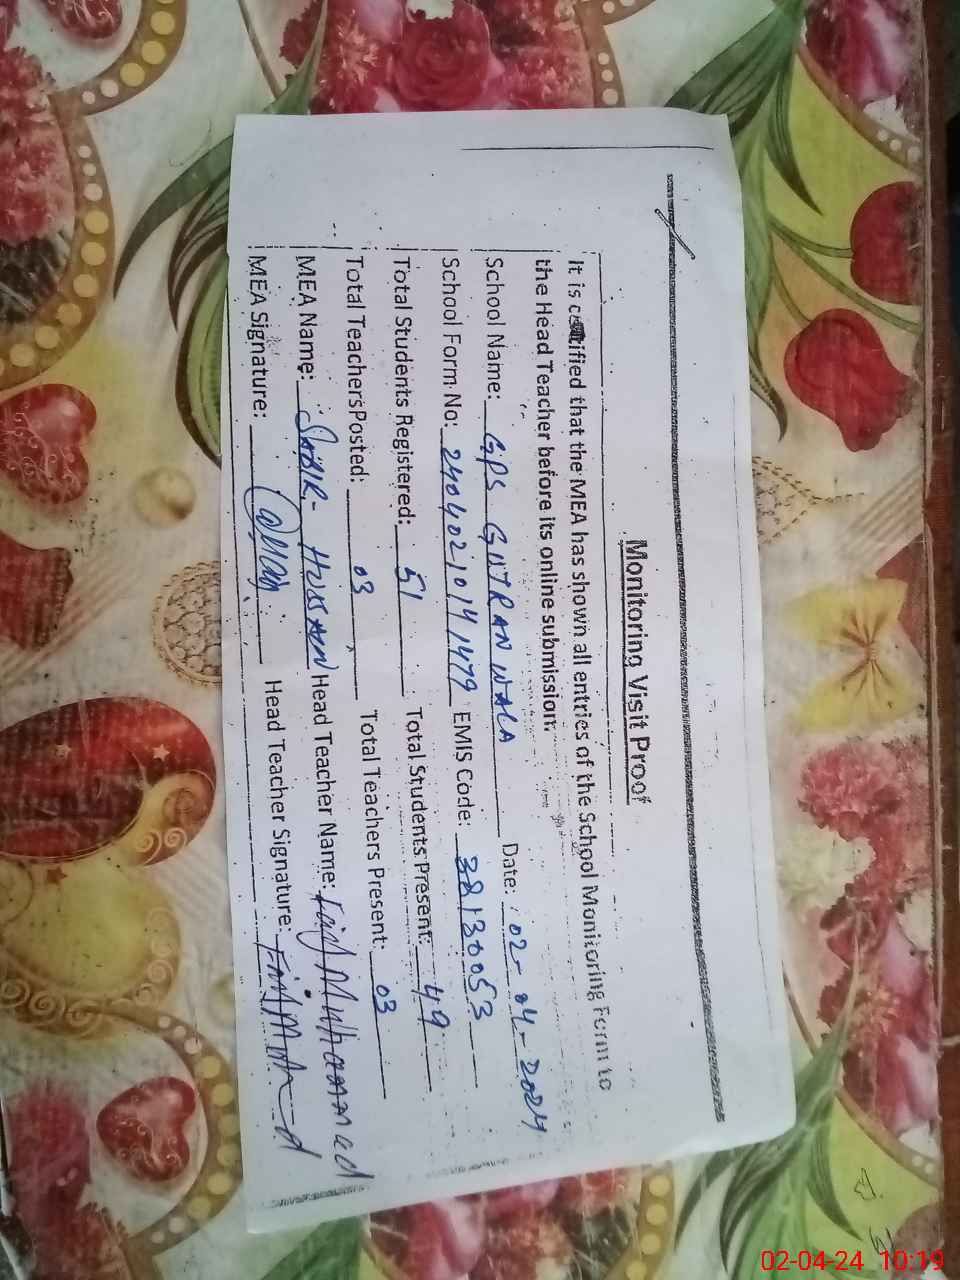 Monitoring Visit Proof
It is certified that the MEA has shown all entries of the School Monitoring Form to
the Head Teacher before its online submission.
School Name: GPS GUTRAN WALA Date: 02-04-2024
School Form No: 24040210141479 EMIS Code: 38130053
Total Students Registered: 51 Total Students Present: 49
Total Teachers Posted: 03 Total Teachers Present: 03
MEA Name: SABIR HUSSAIN Head Teacher Name: Faiz Muhammad
MEA Signature: Head Teacher Signature:
02-04-24 10:19